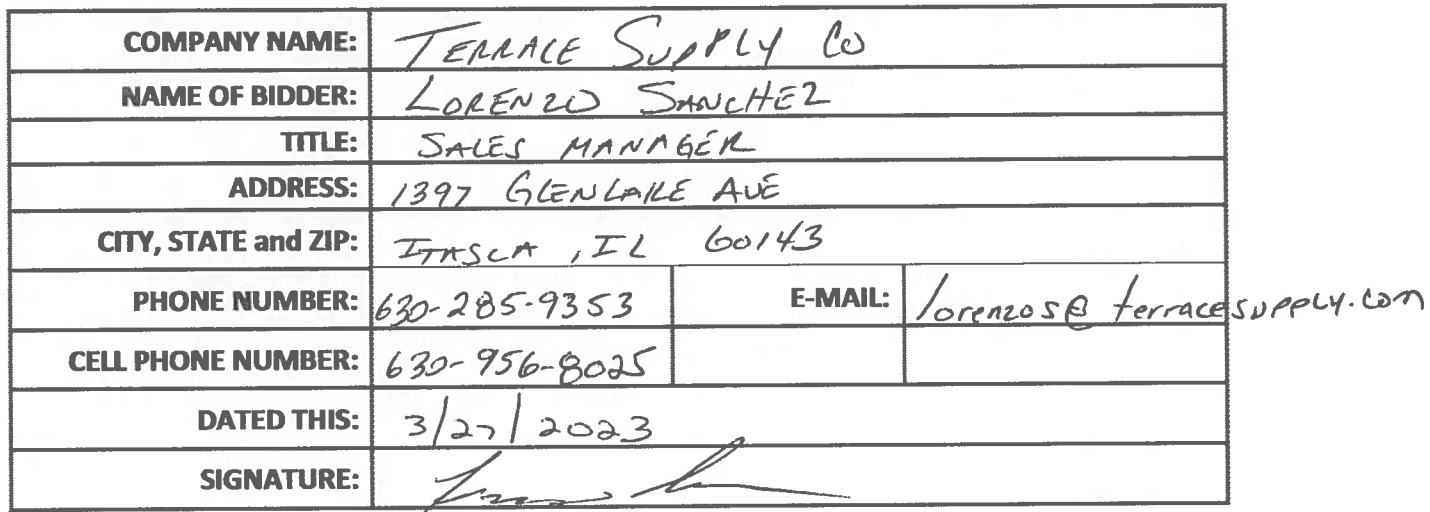 COMPANY NAME: TERRACE SUPPLY CO
NAME OF BIDDER: LORENZO SANCHEZ
TITLE: SALES MANAGER
ADDRESS: 1397 GLENLAKE AVE
CITY, STATE and ZIP: ITASCA, IL 60143
PHONE NUMBER: 630-285-9353 E-MAIL: lorenzos@terracesupply.com
CELL PHONE NUMBER: 630-956-8025
DATED THIS: 3/27/2023
SIGNATURE: